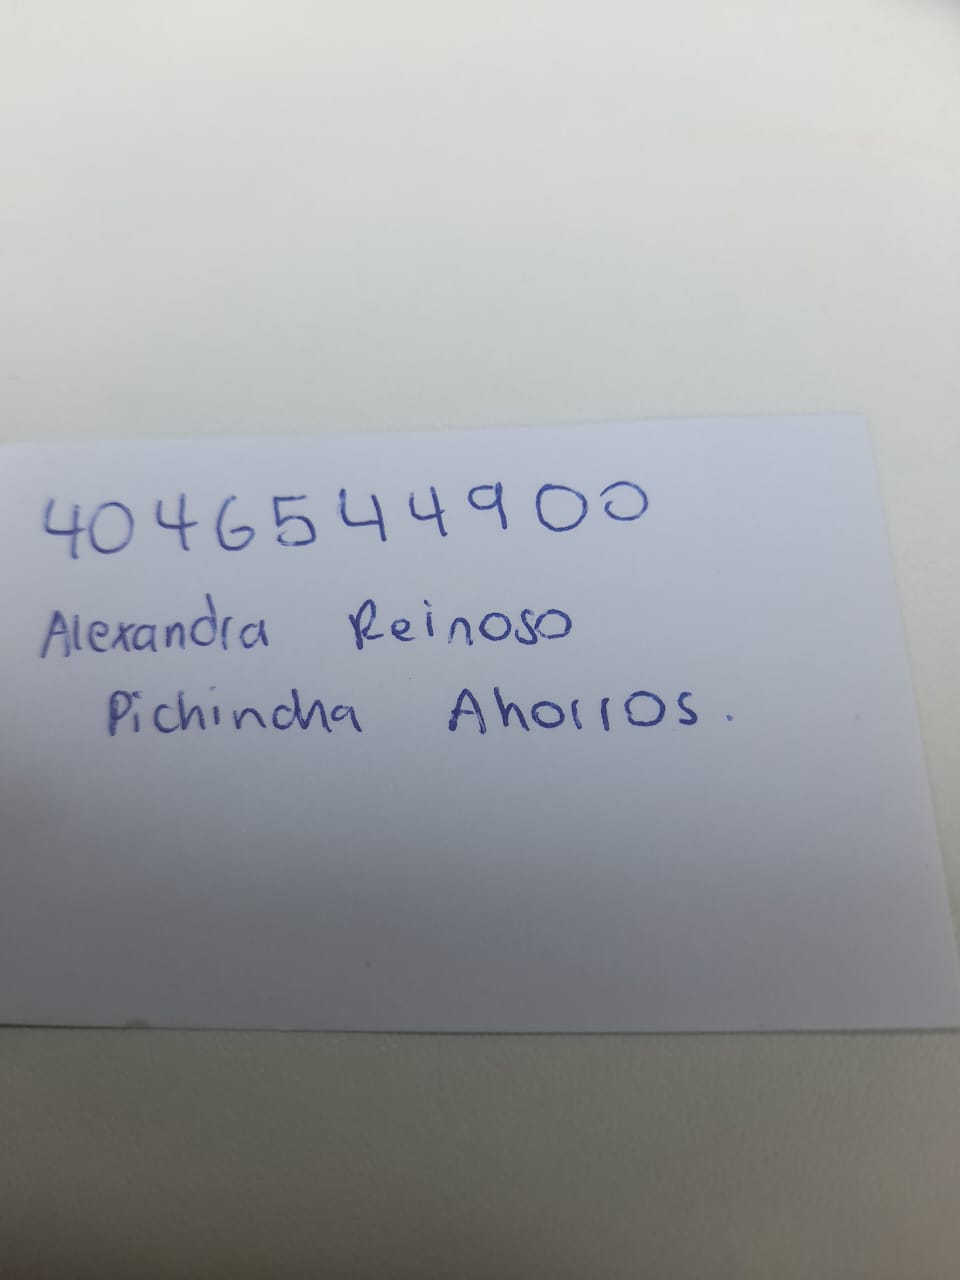 4046544900
Alexandra Reinoso
Pichincha Ahorros.